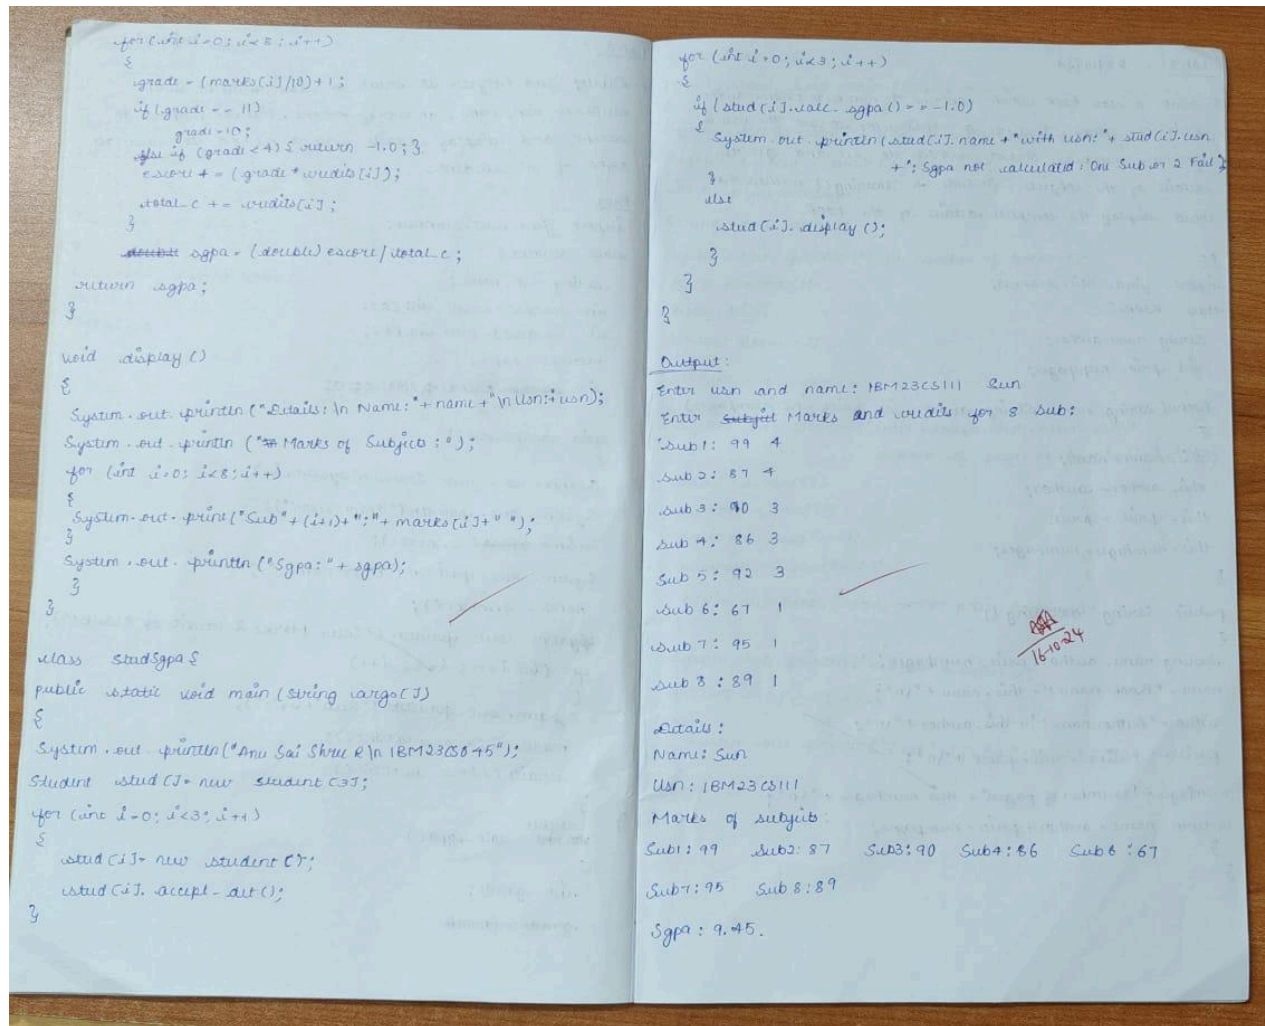 for (int i=0; i<8; i++)
{
grade = (marks[i]/10)+1;
if (grade == 11)
grade=10;
else if (grade < 4) { return -1.0; }
escore += (grade * credits[i]);
total_c += credits[i];
}
sgpa = (double) escore/total_c;
return sgpa;
}
void display ()
{
System.out.println ("Details: \n Name: "+ name +"\n Usn: + usn);
System.out.println ("Marks of Subjects : ");
for (int i=0; i<8; i++)
{
System.out.print ("Sub" + (i+1) + ":" + marks[i] + " ");
}
System.out.println ("Sgpa: " + sgpa);
}
}
class StudSgpa {
public static void main (String args[])
{
System.out.println ("Anu Sai Shree R \n 1BM23CS045");
Student stud [] = new student [3];
for (int i=0; i<3; i++)
{
stud [i] = new student ();
stud [i]. accept_det ();
}
for (int i=0; i<3; i++)
{
if (stud [i]. calc_sgpa () == -1.0)
{
System.out.println (stud [i]. name + "with usn: "+ stud [i]. usn
+ ": Sgpa not calculated : One Sub or 2 Fail
}
else
stud [i]. display ();
}
}
}
Output:
Enter usn and name: 1BM23CS111 Sun
Enter Subject Marks and credits for 8 sub:
Sub 1: 99 4
Sub 2: 87 4
Sub 3: 90 3
Sub 4: 86 3
Sub 5: 92 3
Sub 6: 67 1
Sub 7: 95 1
Sub 8: 89 1
16-10-24
Details:
Name: Sun
Usn: 1BM23CS111
Marks of subjects:
Sub1: 99 Sub2: 87 Sub3: 90 Sub4: 86 Sub6: 67
Sub7: 95 Sub 8: 89
Sgpa : 9.45.